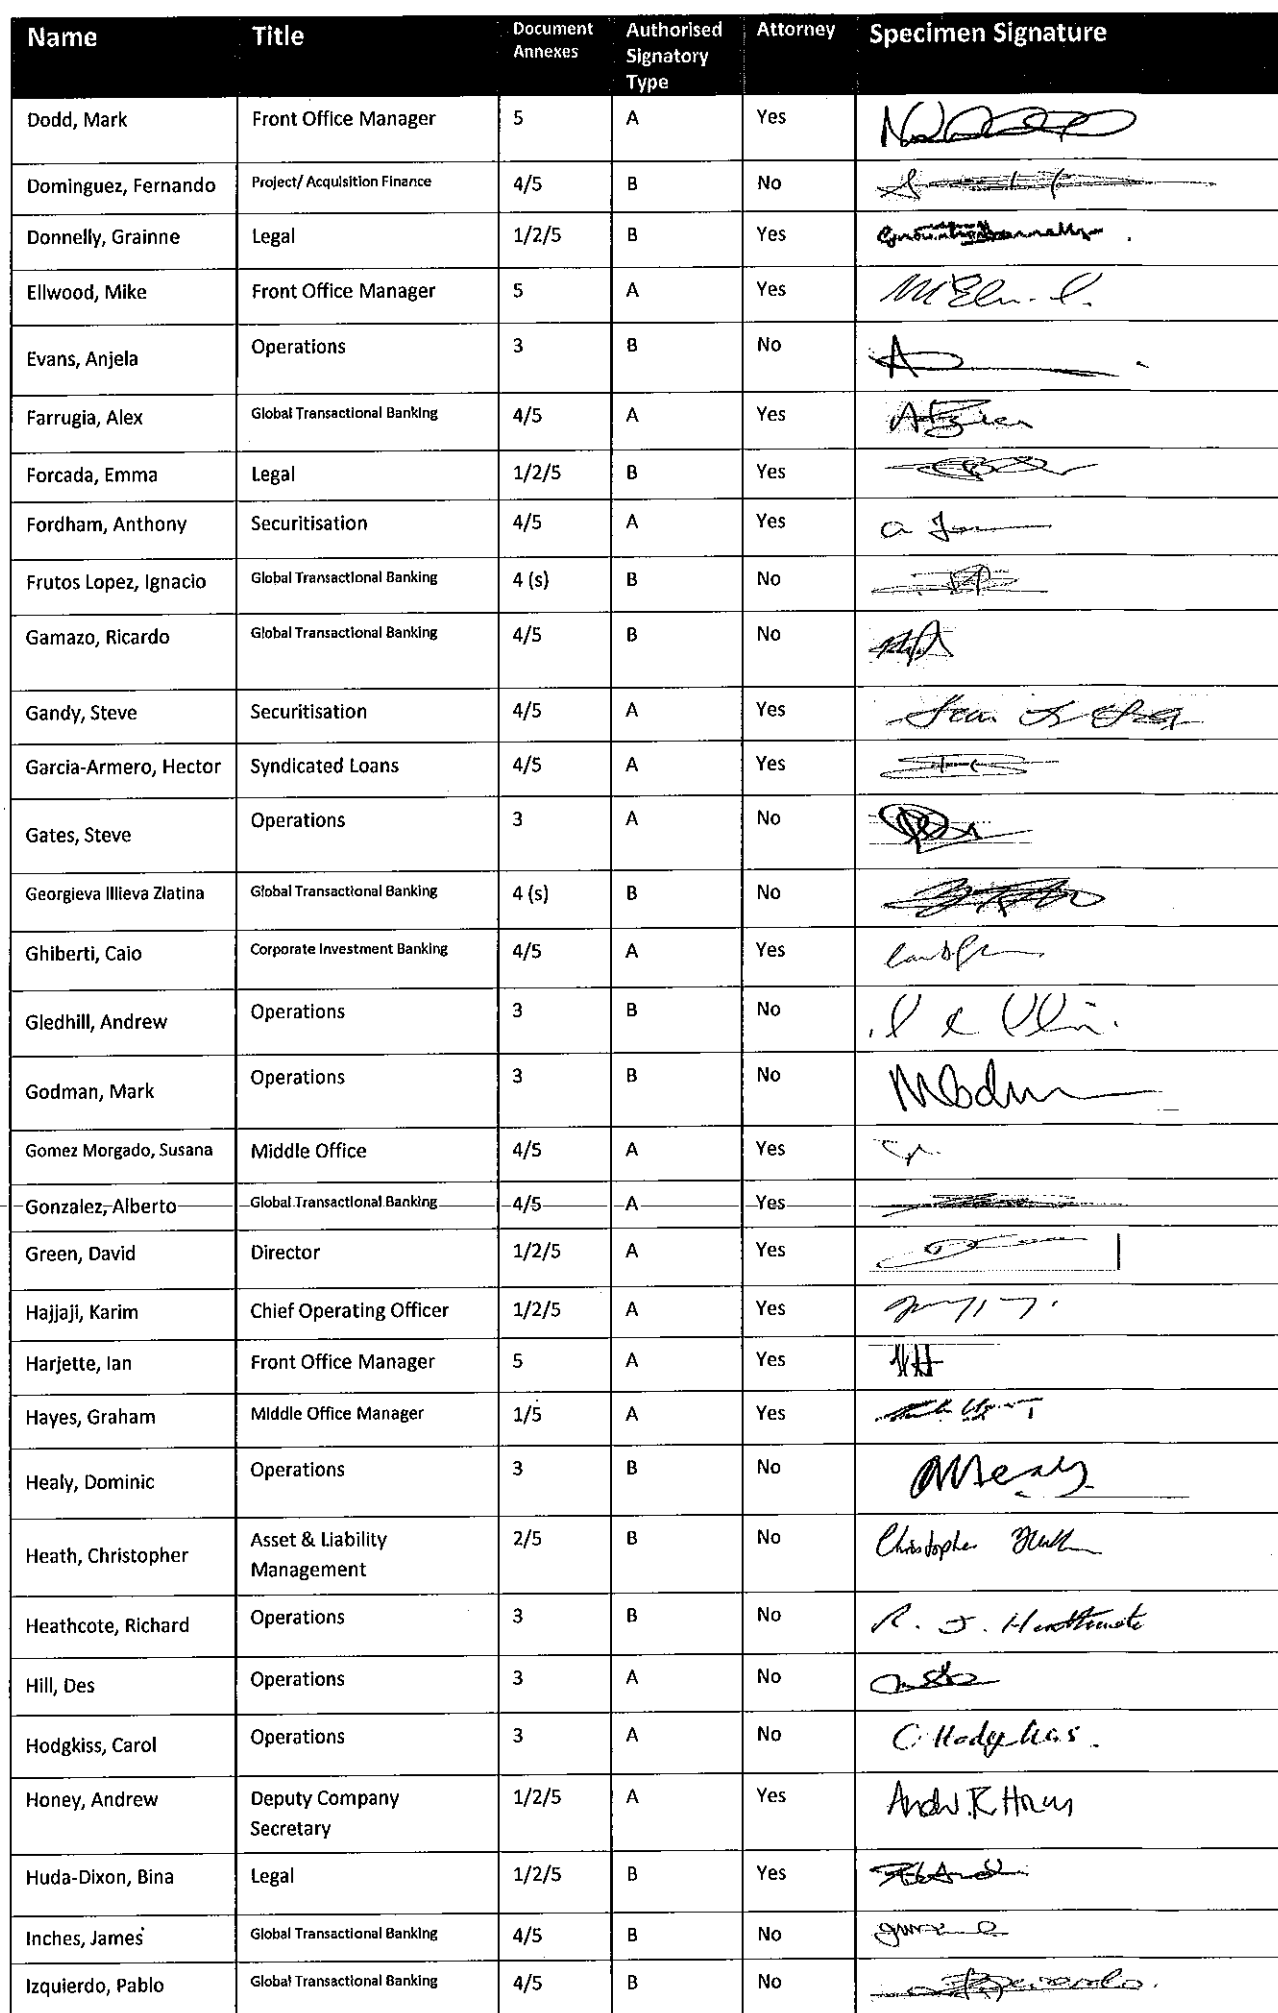 Name Title Document Annexes Authorised Signatory Type Attorney Specimen Signature
Dodd, Mark Front Office Manager 5 A Yes
Dominguez, Fernando Project/ Acquisition Finance 4/5 B No
Donnelly, Grainne Legal 1/2/5 B Yes
Ellwood, Mike Front Office Manager 5 A Yes
Evans, Anjela Operations 3 B No
Farrugia, Alex Global Transactional Banking 4/5 A Yes
Forcada, Emma Legal 1/2/5 B Yes
Fordham, Anthony Securitisation 4/5 A Yes
Frutos Lopez, Ignacio Global Transactional Banking 4 (s) B No
Gamazo, Ricardo Global Transactional Banking 4/5 B No
Gandy, Steve Securitisation 4/5 A Yes
Garcia-Armero, Hector Syndicated Loans 4/5 A Yes
Gates, Steve Operations 3 A No
Georgieva Illieva Zlatina Global Transactional Banking 4 (s) B No
Ghiberti, Caio Corporate Investment Banking 4/5 A Yes
Gledhill, Andrew Operations 3 B No
Godman, Mark Operations 3 B No
Gomez Morgado, Susana Middle Office 4/5 A Yes
Gonzalez, Alberto Global Transactional Banking 4/5 A Yes
Green, David Director 1/2/5 A Yes
Hajjaji, Karim Chief Operating Officer 1/2/5 A Yes
Harjette, Ian Front Office Manager 5 A Yes
Hayes, Graham Middle Office Manager 1/5 A Yes
Healy, Dominic Operations 3 B No
Heath, Christopher Asset & Liability Management 2/5 B No Christopher
Heathcote, Richard Operations 3 B No R. J. Heathcote
Hill, Des Operations 3 A No
Hodgkiss, Carol Operations 3 A No C. Hodgkiss.
Honey, Andrew Deputy Company Secretary 1/2/5 A Yes
Huda-Dixon, Bina Legal 1/2/5 B Yes
Inches, James Global Transactional Banking 4/5 B No
Izquierdo, Pablo Global Transactional Banking 4/5 B No